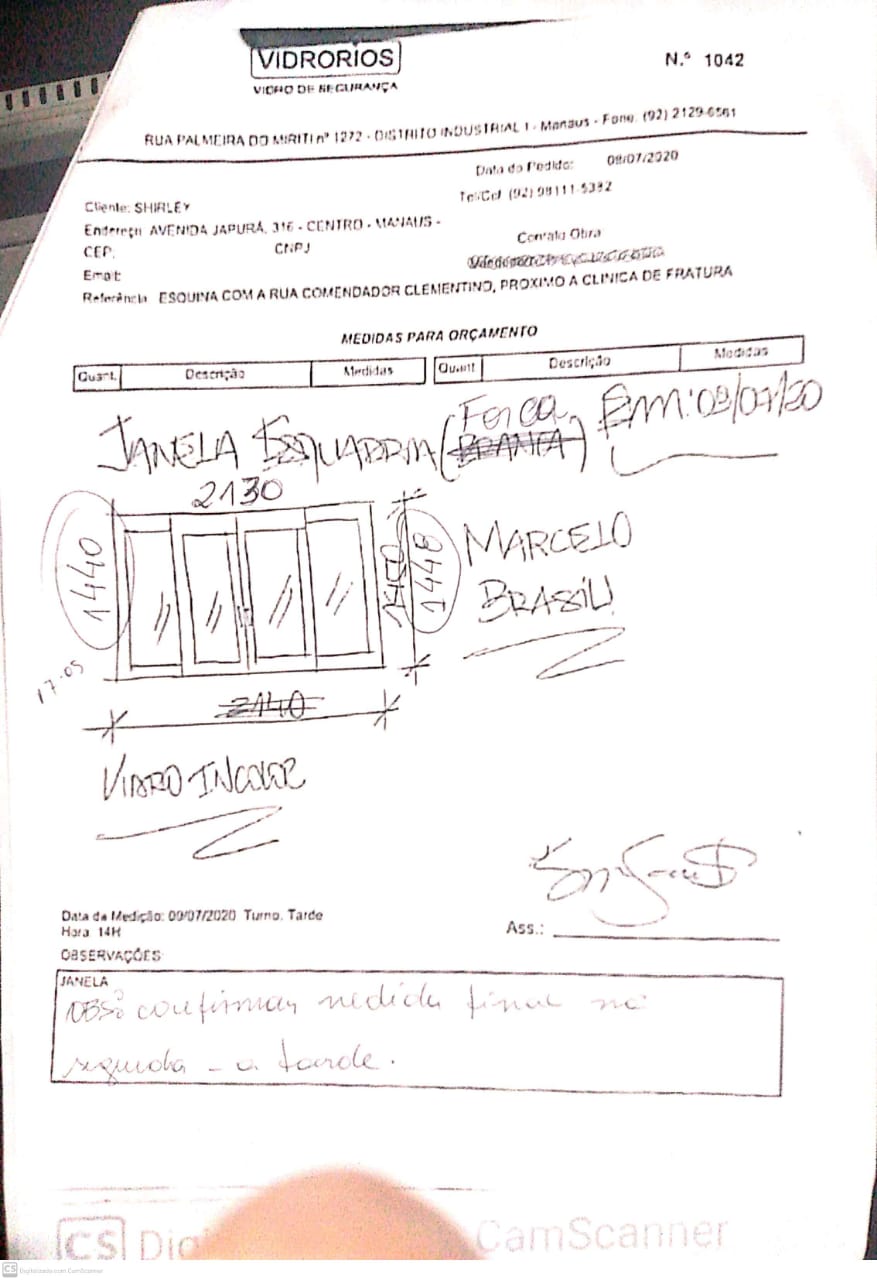 VIDRORIOS
VIDRO DE SEGURANÇA
N.º 1042
RUA PALMEIRA DO MIRITI nº 1272 - DISTRITO INDUSTRIAL I - Manaus - Fone. (92) 2129-6561
Data do Pedido: 09/07/2020
Cliente: SHIRLEY
Tel/Cel (92) 98111-5392
Endereço: AVENIDA JAPURÁ, 316 - CENTRO - MANAUS -
CEP: CNPJ
Contato Obra
Email:
Referência: ESQUINA COM A RUA COMENDADOR CLEMENTINO, PROXIMO A CLINICA DE FRATURA
MEDIDAS PARA ORÇAMENTO
Quant. Descrição Medidas Quant Descrição Medidas
JANELA ESQUADRIA (BRANCA) Em: 09/07/20
2130
1440
1448
MARCELO
BRASIL
17:05
2140
VIDRO INCOLOR
Data da Medição: 09/07/2020 Turno. Tarde
Hora. 14H
Ass.:
OBSERVAÇÕES
JANELA
OBS: confirmar medida final na
segunda - a tarde.
CS Digi CamScanner
CS Digitalizado com CamScanner